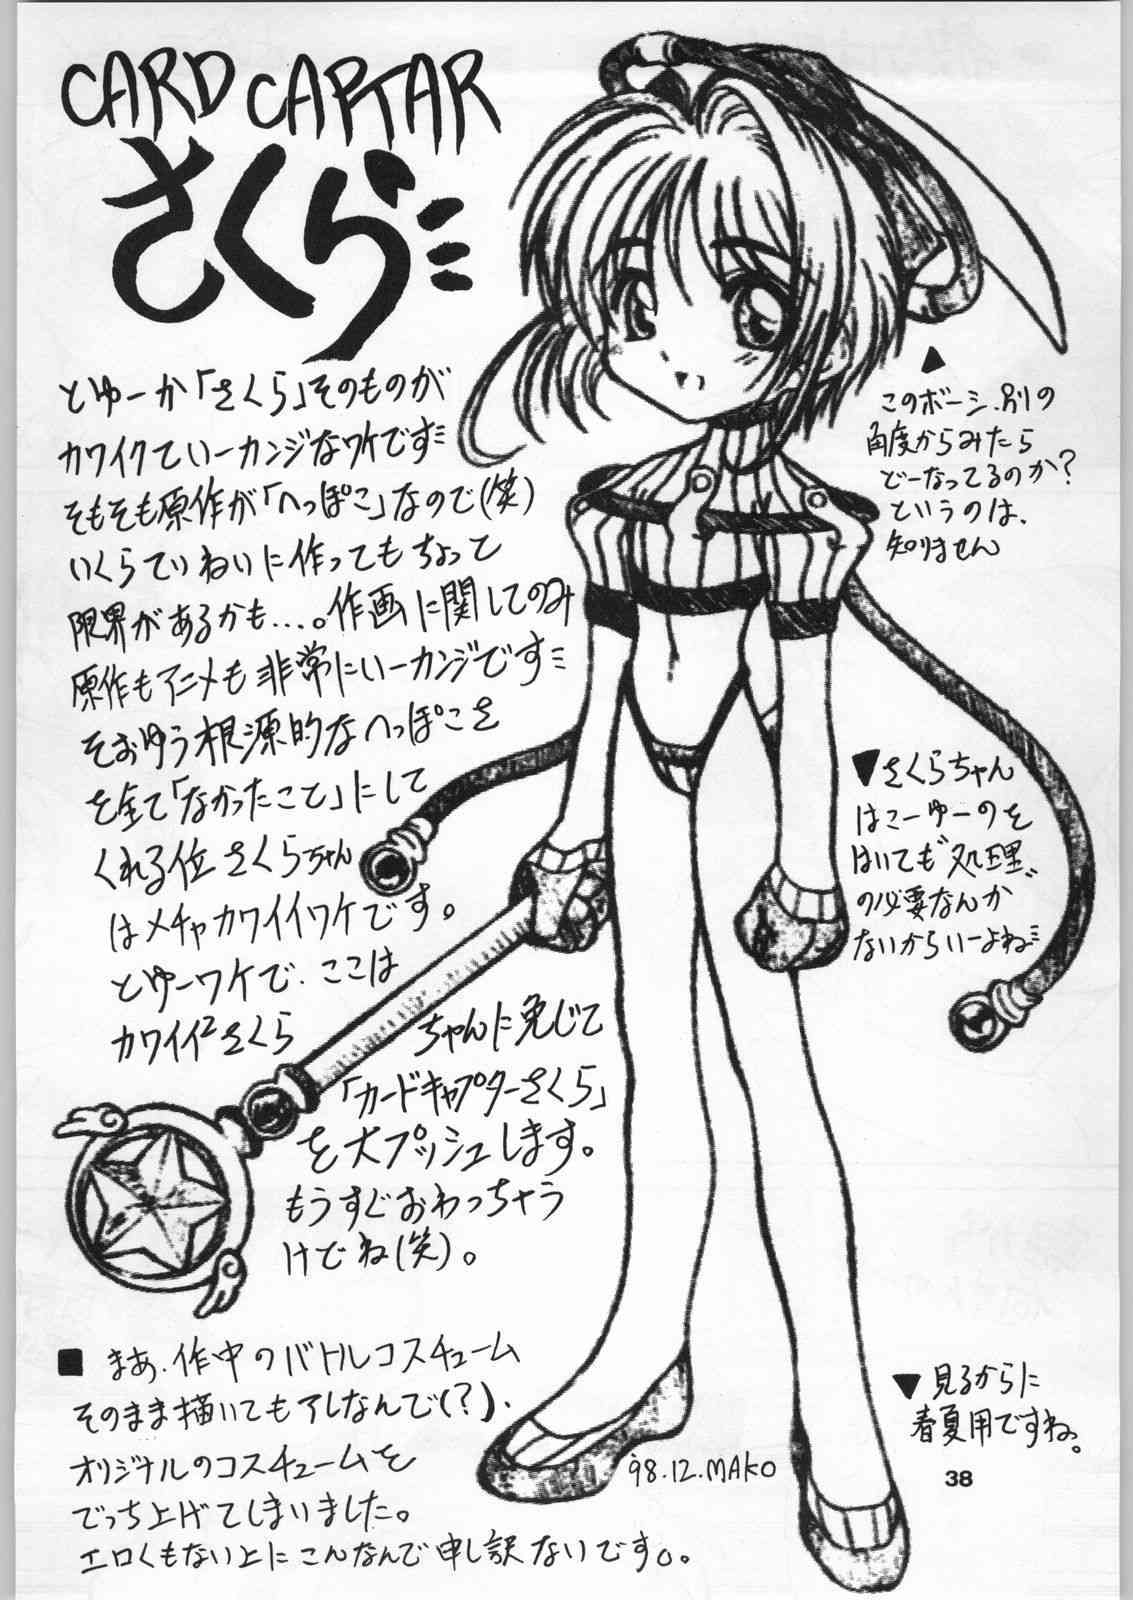 CARD CAPTAR
さくら
とゆーか「さくら」そのものが
カワイクていーカンジなワケです
そもそも原作が「へっぽこ」なので(笑)
いくらていねいに作ってもちょっと
限界があるかも…。作画に関してのみ
原作もアニメも非常にいーカンジです
そおゆう根源的なへっぽこさ
を全て「なかったこと」にして
くれる位さくらちゃん
はメチャカワイイワケです。
とゆーワケで、ここは
カワイイ²さくら
ちゃんに免じて
「カードキャプターさくら」
を大プッシュします。
もうすぐおわっちゃう
けどね(笑)。
▲
このボーシ、別の
角度からみたら
どーなってるのか?
というのは、
知りません
■ まあ、作中のバトルコスチューム
そのまま描いてもアレなんで(?)、
オリジナルのコスチュームを
でっち上げてしまいました。
エロくもない上にこんなんで申し訳ないです。。
▼見るからに
春夏用ですね。
'98.12.MAKO
38